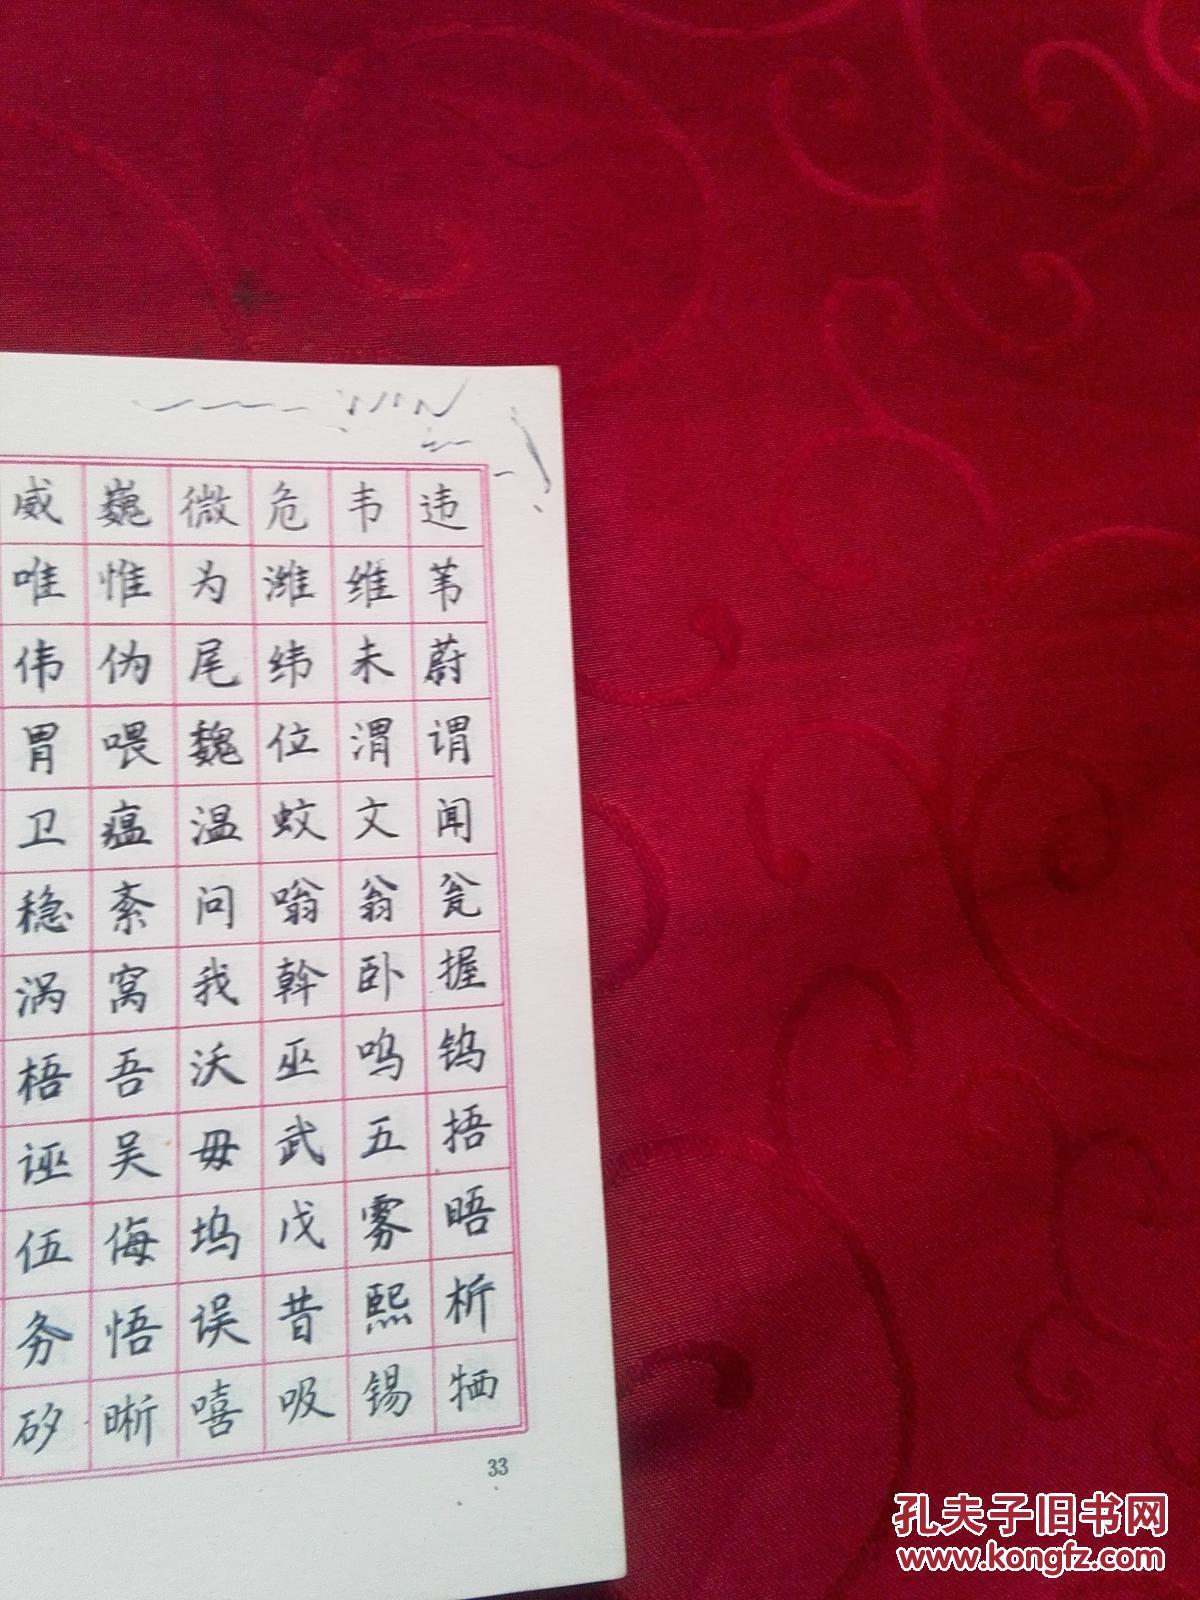 威巍微危韦违
唯惟为潍维苇
伟伪尾纬未蔚
胃喂魏位渭谓
卫瘟温蚊文闻
稳紊问嗡翁瓮
涡窝我斡卧握
梧吾沃巫呜钨
诬吴毋武五捂
伍侮坞戊雾晤
务悟误昔熙析
矽晰嘻吸锡牺
33
孔夫子旧书网
www.kongfz.com